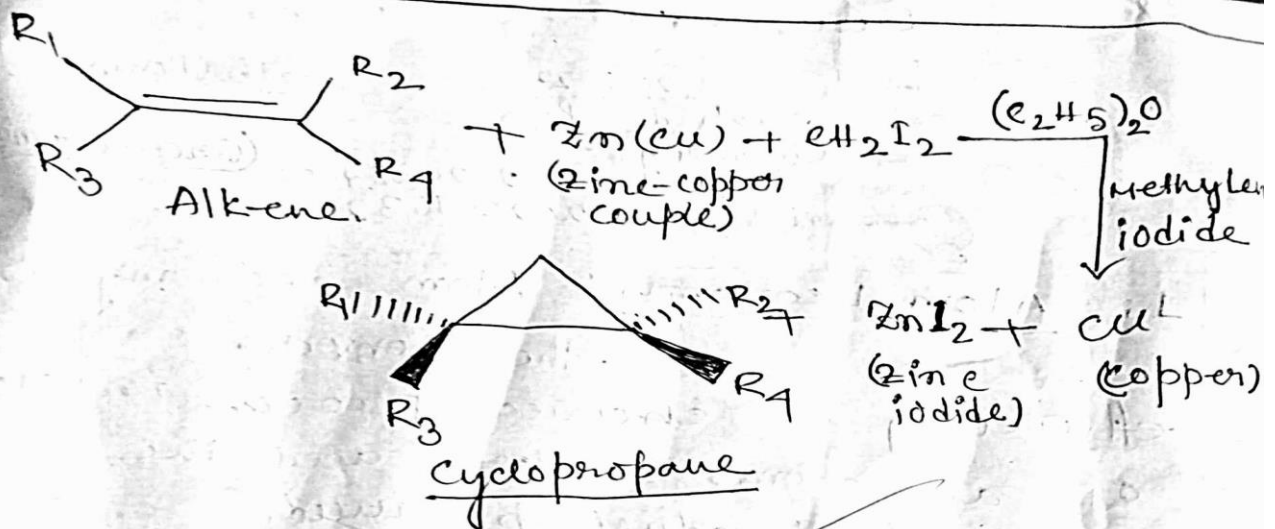 R₁ R₂
R₃ R₄
Alkene.
+ Zn(Cu) + CH₂I₂ (C₂H₅)₂O
(Zinc-copper
couple)
Methylen
iodide
R₁ R₂ + ZnI₂ + Cu
(Zinc
iodide)
(copper)
R₃ R₄
Cyclopropane